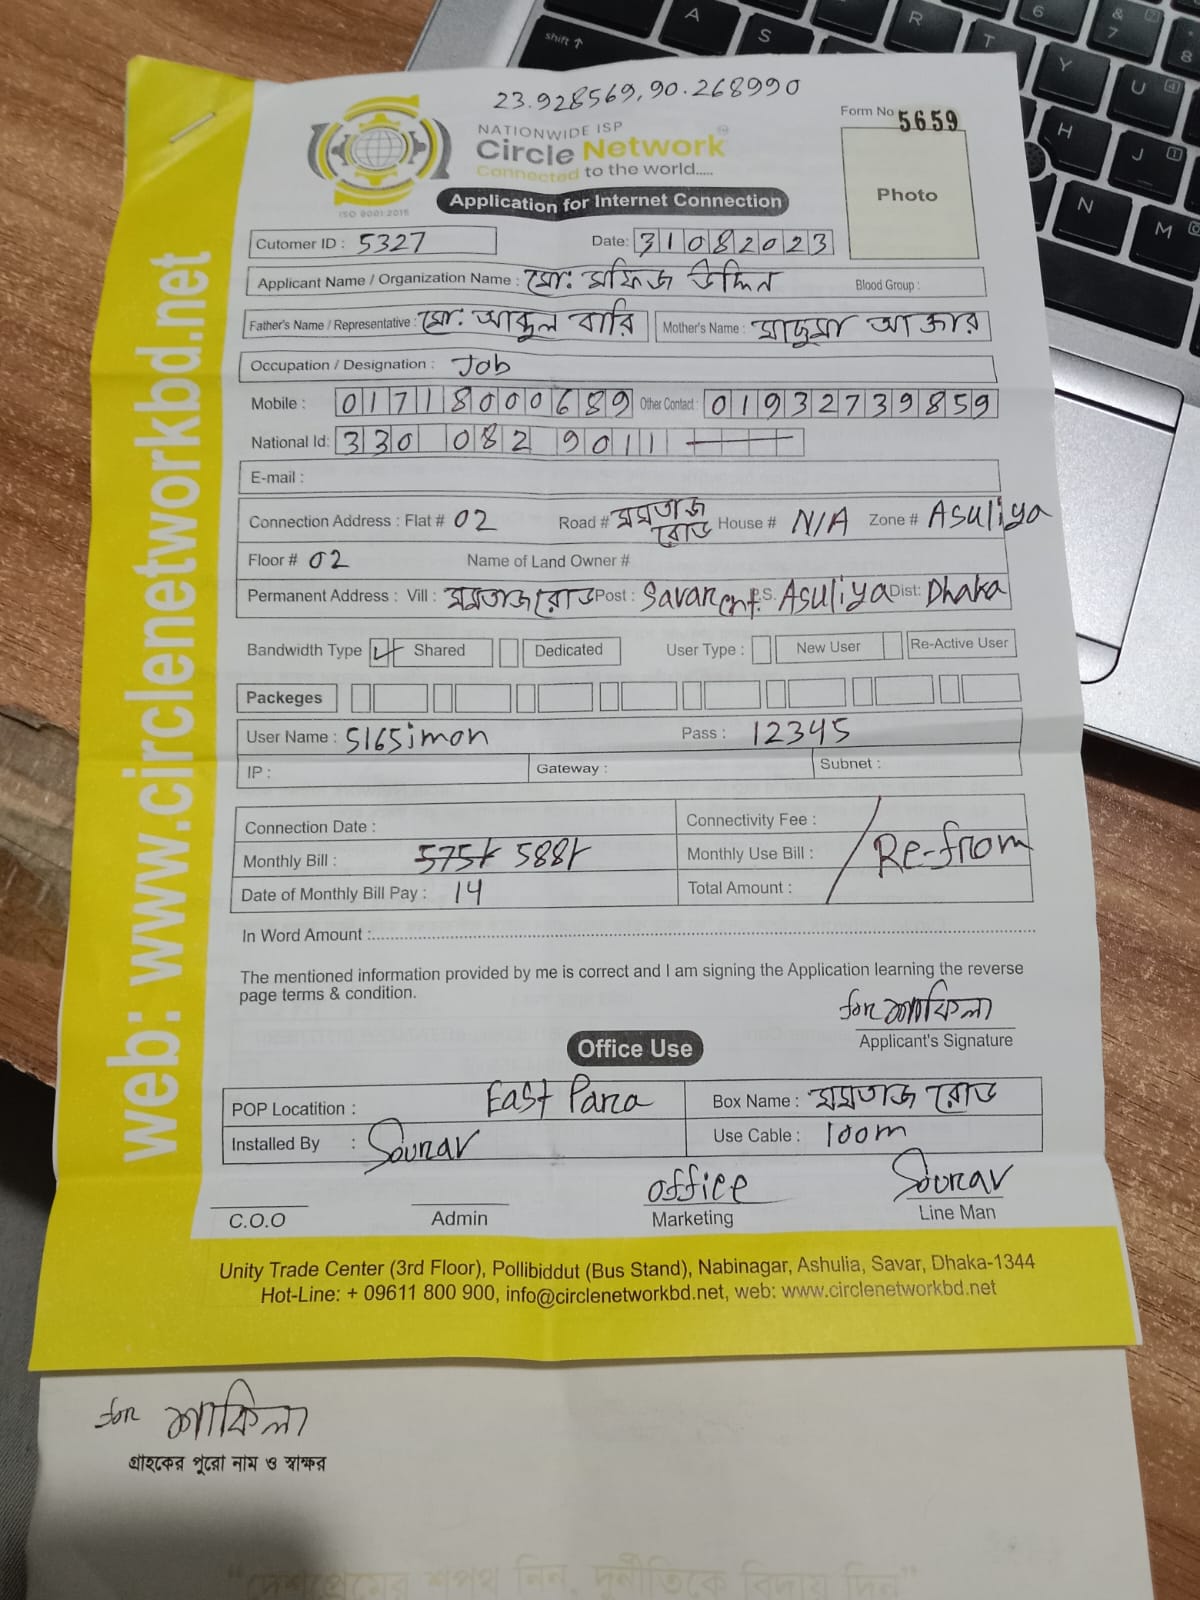 23.928569,90.268990
Form No 5659
NATIONWIDE ISP
Circle Network
Connected to the world.....
ISO 9001:2015
Photo
Application for Internet Connection
Cutomer ID : 5327 Date: 31082023
Applicant Name / Organization Name : মো: মফিজ উদ্দিন Blood Group :
Father's Name / Representative : মো: আব্দুল বারি Mother's Name : মাসুমা আক্তার
Occupation / Designation : Job
Mobile : 01718000689 Other Contact : 01932739859
National Id: 330 082 9011
E-mail :
Connection Address : Flat # 02 Road # মমতাজ রোড House # N/A Zone # Asuliya
Floor # 02 Name of Land Owner #
Permanent Address : Vill : মমতাজ রোড Post : Savar cnt P.S. Asuliya Dist: Dhaka
Bandwidth Type Shared Dedicated User Type : New User Re-Active User
Packeges
User Name : 5165imon Pass : 12345
IP : Gateway : Subnet :
Connection Date : Connectivity Fee :
Monthly Bill : 575/- 588/- Monthly Use Bill : Re-from
Date of Monthly Bill Pay : 14 Total Amount :
In Word Amount :
The mentioned information provided by me is correct and I am signing the Application learning the reverse
page terms & condition.
for শাকিলা
Applicant's Signature
Office Use
POP Locatition : East Para Box Name : মমতাজ রোড
Installed By : Sourav Use Cable : 100m
office Sourav
C.O.O Admin Marketing Line Man
Unity Trade Center (3rd Floor), Pollibiddut (Bus Stand), Nabinagar, Ashulia, Savar, Dhaka-1344
Hot-Line: + 09611 800 900, info@circlenetworkbd.net, web: www.circlenetworkbd.net
web: www.circlenetworkbd.net
for শাকিলা
গ্রাহকের পুরো নাম ও স্বাক্ষর
"দেশপ্রেমের শপথ নিন, দুর্নীতিকে বিদায় দিন"